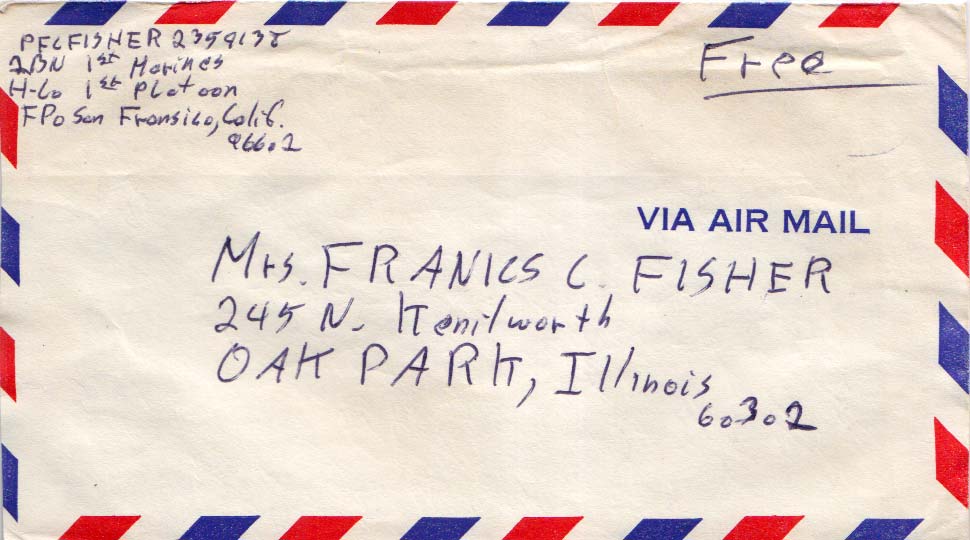 PFC FISHER 2359138
2BN 1st Marines
H-Co 1st Platoon
FPO San Fransico, Calif.
96602
Free
VIA AIR MAIL
Mrs. FRANICS C. FISHER
245 N. Kenilworth
OAK PARK, Illinois
60302